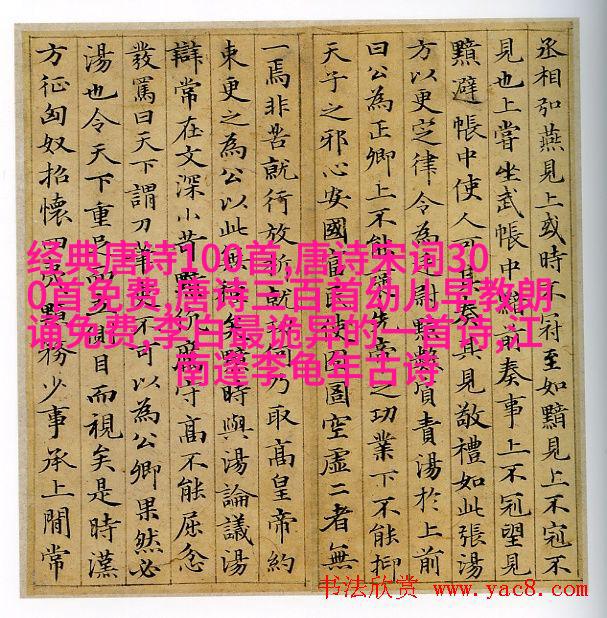 丞相弘燕見上或時不冠至如黯見上不冠不
見也上嘗坐武帳中黯前奏事上不冠望見
黯避帳中使人可其奏其見敬禮如此張湯
方以更定律令為廷尉黯數質責湯於上前
曰公為正卿上不能襃先帝之功業下不能抑
天子之邪心安國富民使囹圄空虛二者無
一焉非苦就行放析就功何乃取高皇帝約
束更之為公以此無種矣黯時與湯論議湯
辯常在文深小苛黯伉厲守高不能屈忿
發罵曰天下謂刀筆吏不可以為公卿果然必
湯也令天下重足而立側目而視矣是時漢
方征匈奴招懷四夷黯務少事承上間常
经典唐诗100首,唐诗宋词30
0首免费,唐诗三百首幼儿早教朗
诵免费,李白最诡异的一首诗,江
南逢李龟年古诗
书法欣赏 www.yac8.com